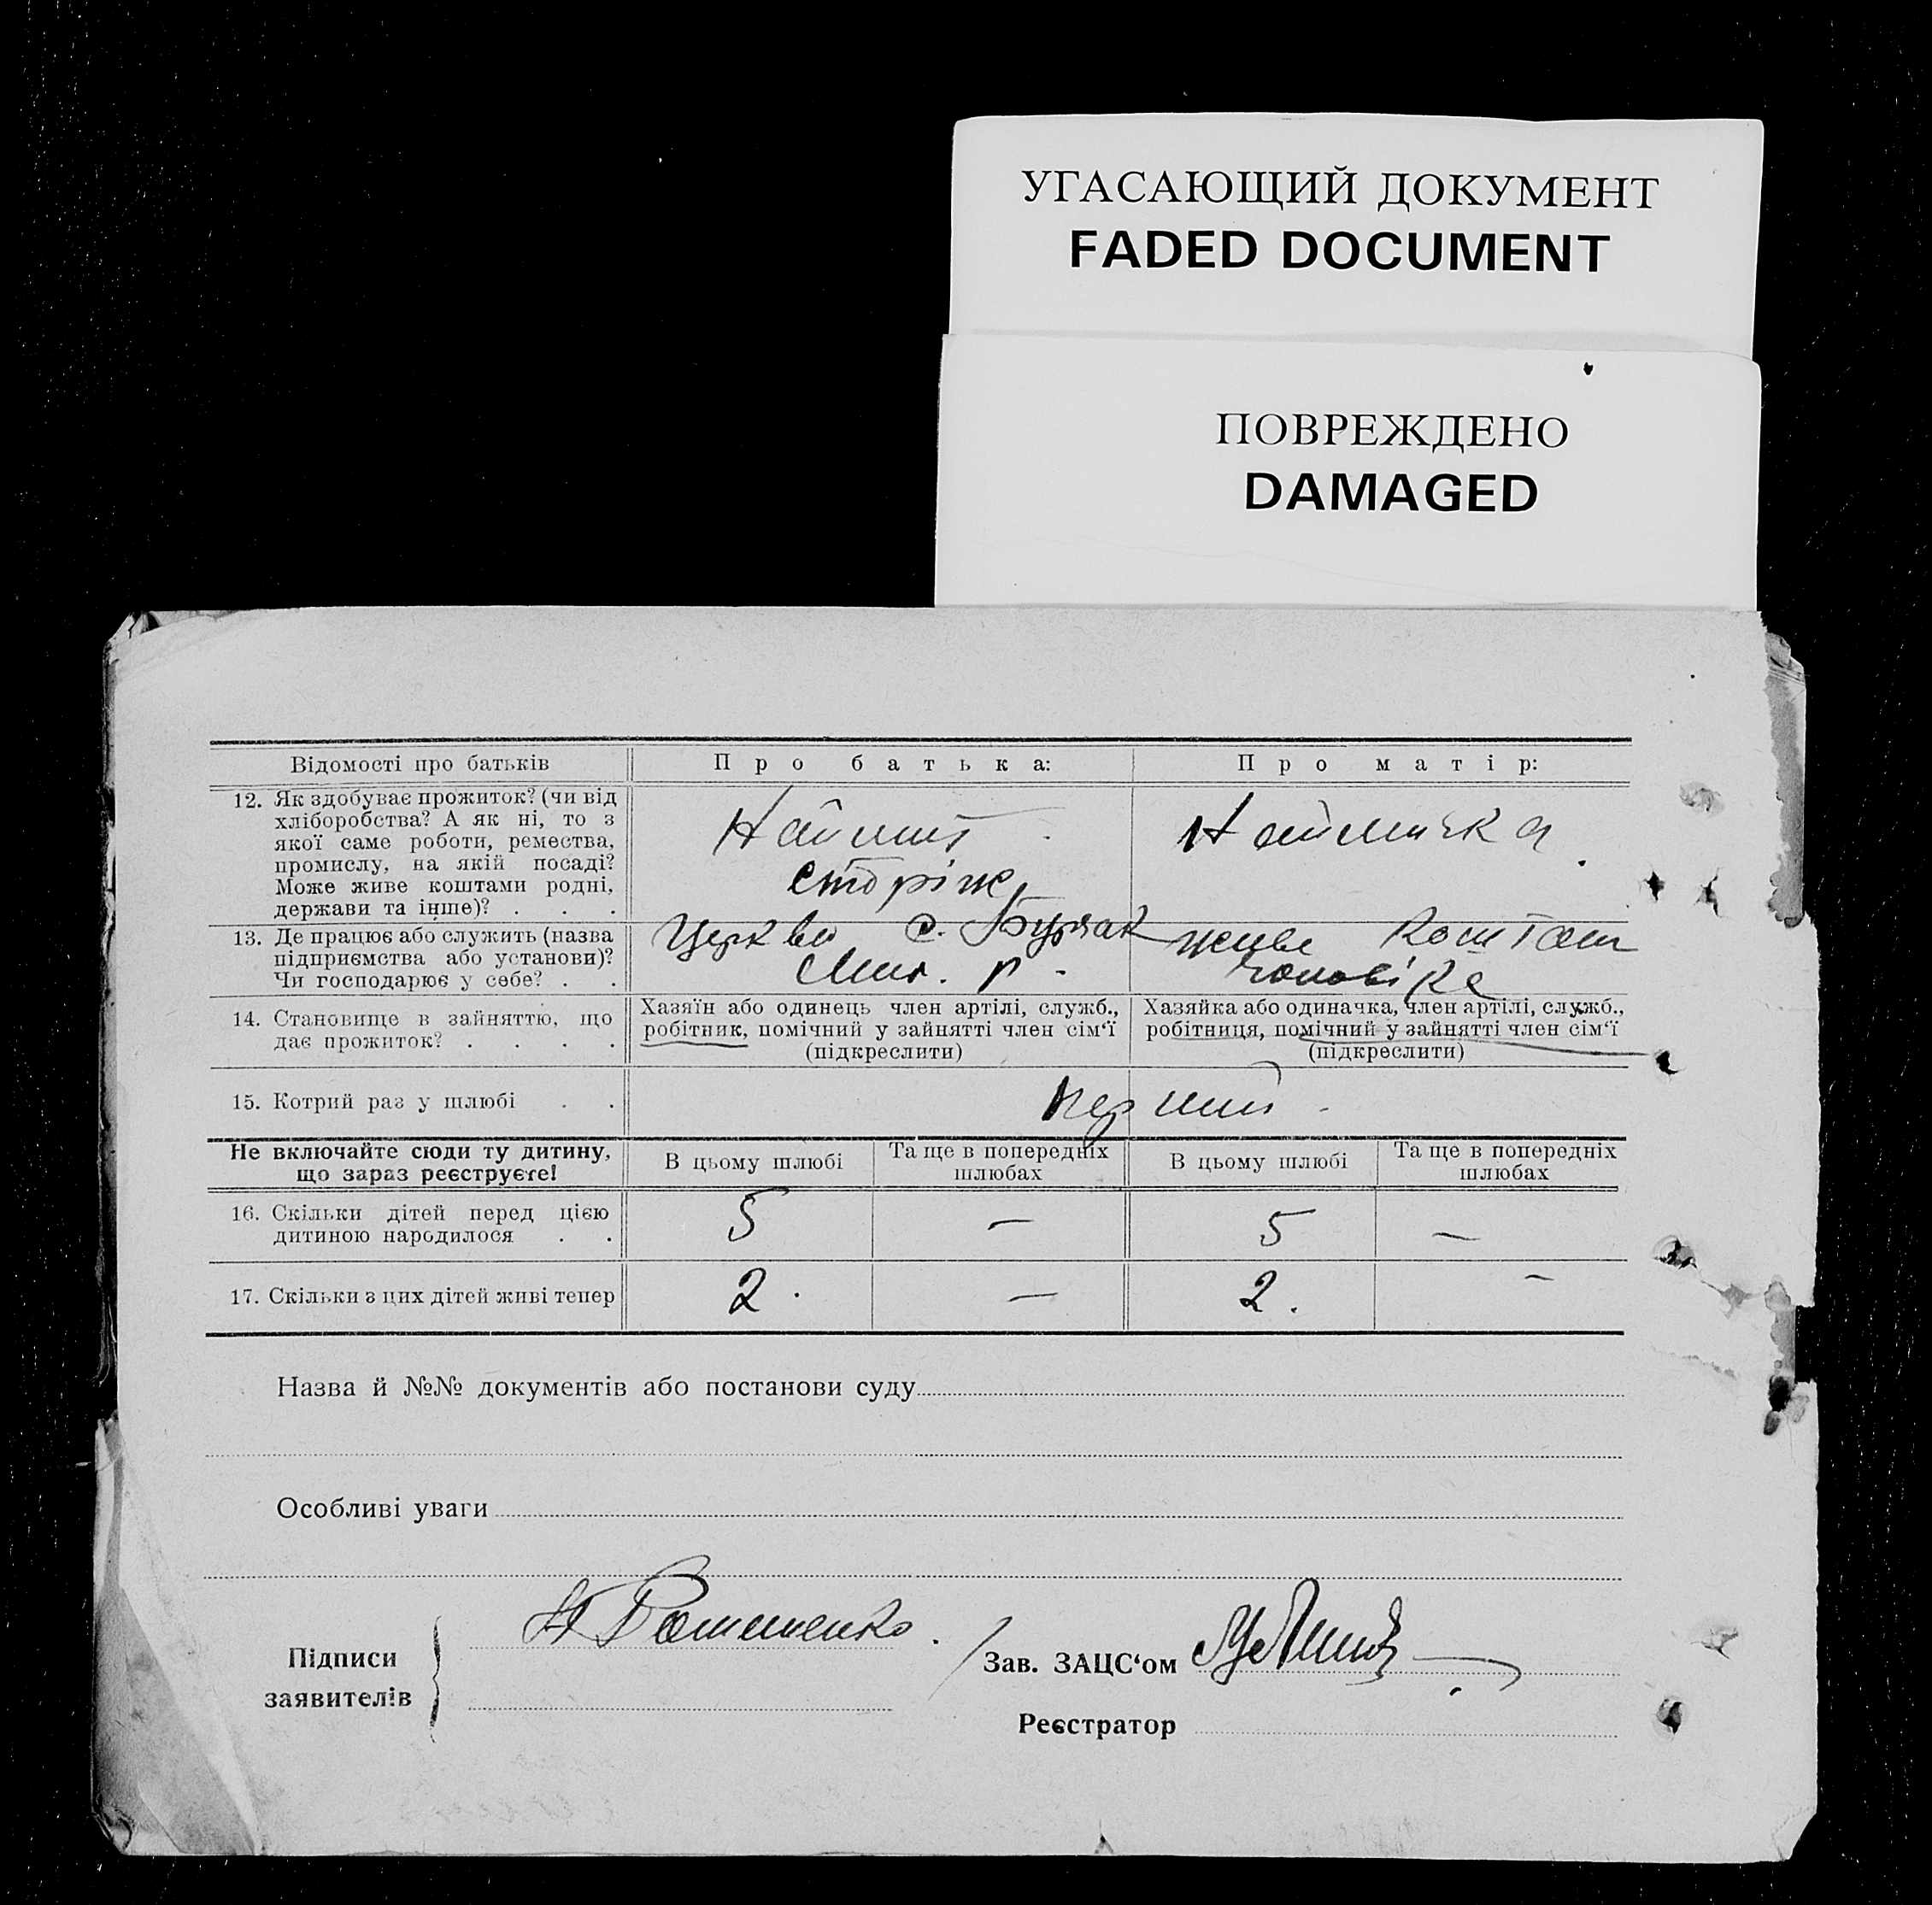 УГАСАЮЩИЙ ДОКУМЕНТ
FADED DOCUMENT
ПОВРЕЖДЕНО
DAMAGED
Відомості про батьків Про батька: Про матір:
12. Як здобуває прожиток? (чи від
хліборобства? А як ні, то з
якої саме роботи, ремества,
промислу, на якій посаді?
Може живе коштами родні,
держави та інше)? . . .
Наймит
сторіж
Наймичка
13. Де працює або служить (назва
підприємства або установи)?
Чи господарює у себе? . .
Церкви с. Бурчак
р.
живе коштом
чоловіка
14. Становище в зайняттю, що
дає прожиток? . . . .
Хазяїн або одинець член артілі, служб.,
робітник, помічний у зайнятті член сім'ї
(підкреслити)
Хазяйка або одиначка, член артілі, служб.,
робітниця, помічний у зайнятті член сім'ї
(підкреслити)
15. Котрий раз у шлюбі . . перший
Не включайте сюди ту дитину,
що зараз реєструєте!
В цьому шлюбі
Та ще в попередніх
шлюбах
В цьому шлюбі
Та ще в попередніх
шлюбах
16. Скільки дітей перед цією
дитиною народилося . .
5 — 5 —
17. Скільки з цих дітей живі тепер 2. — 2. —
Назва й №№ документів або постанови суду
Особливі уваги
Підписи
заявителів
Зав. ЗАЦС'ом
Реєстратор